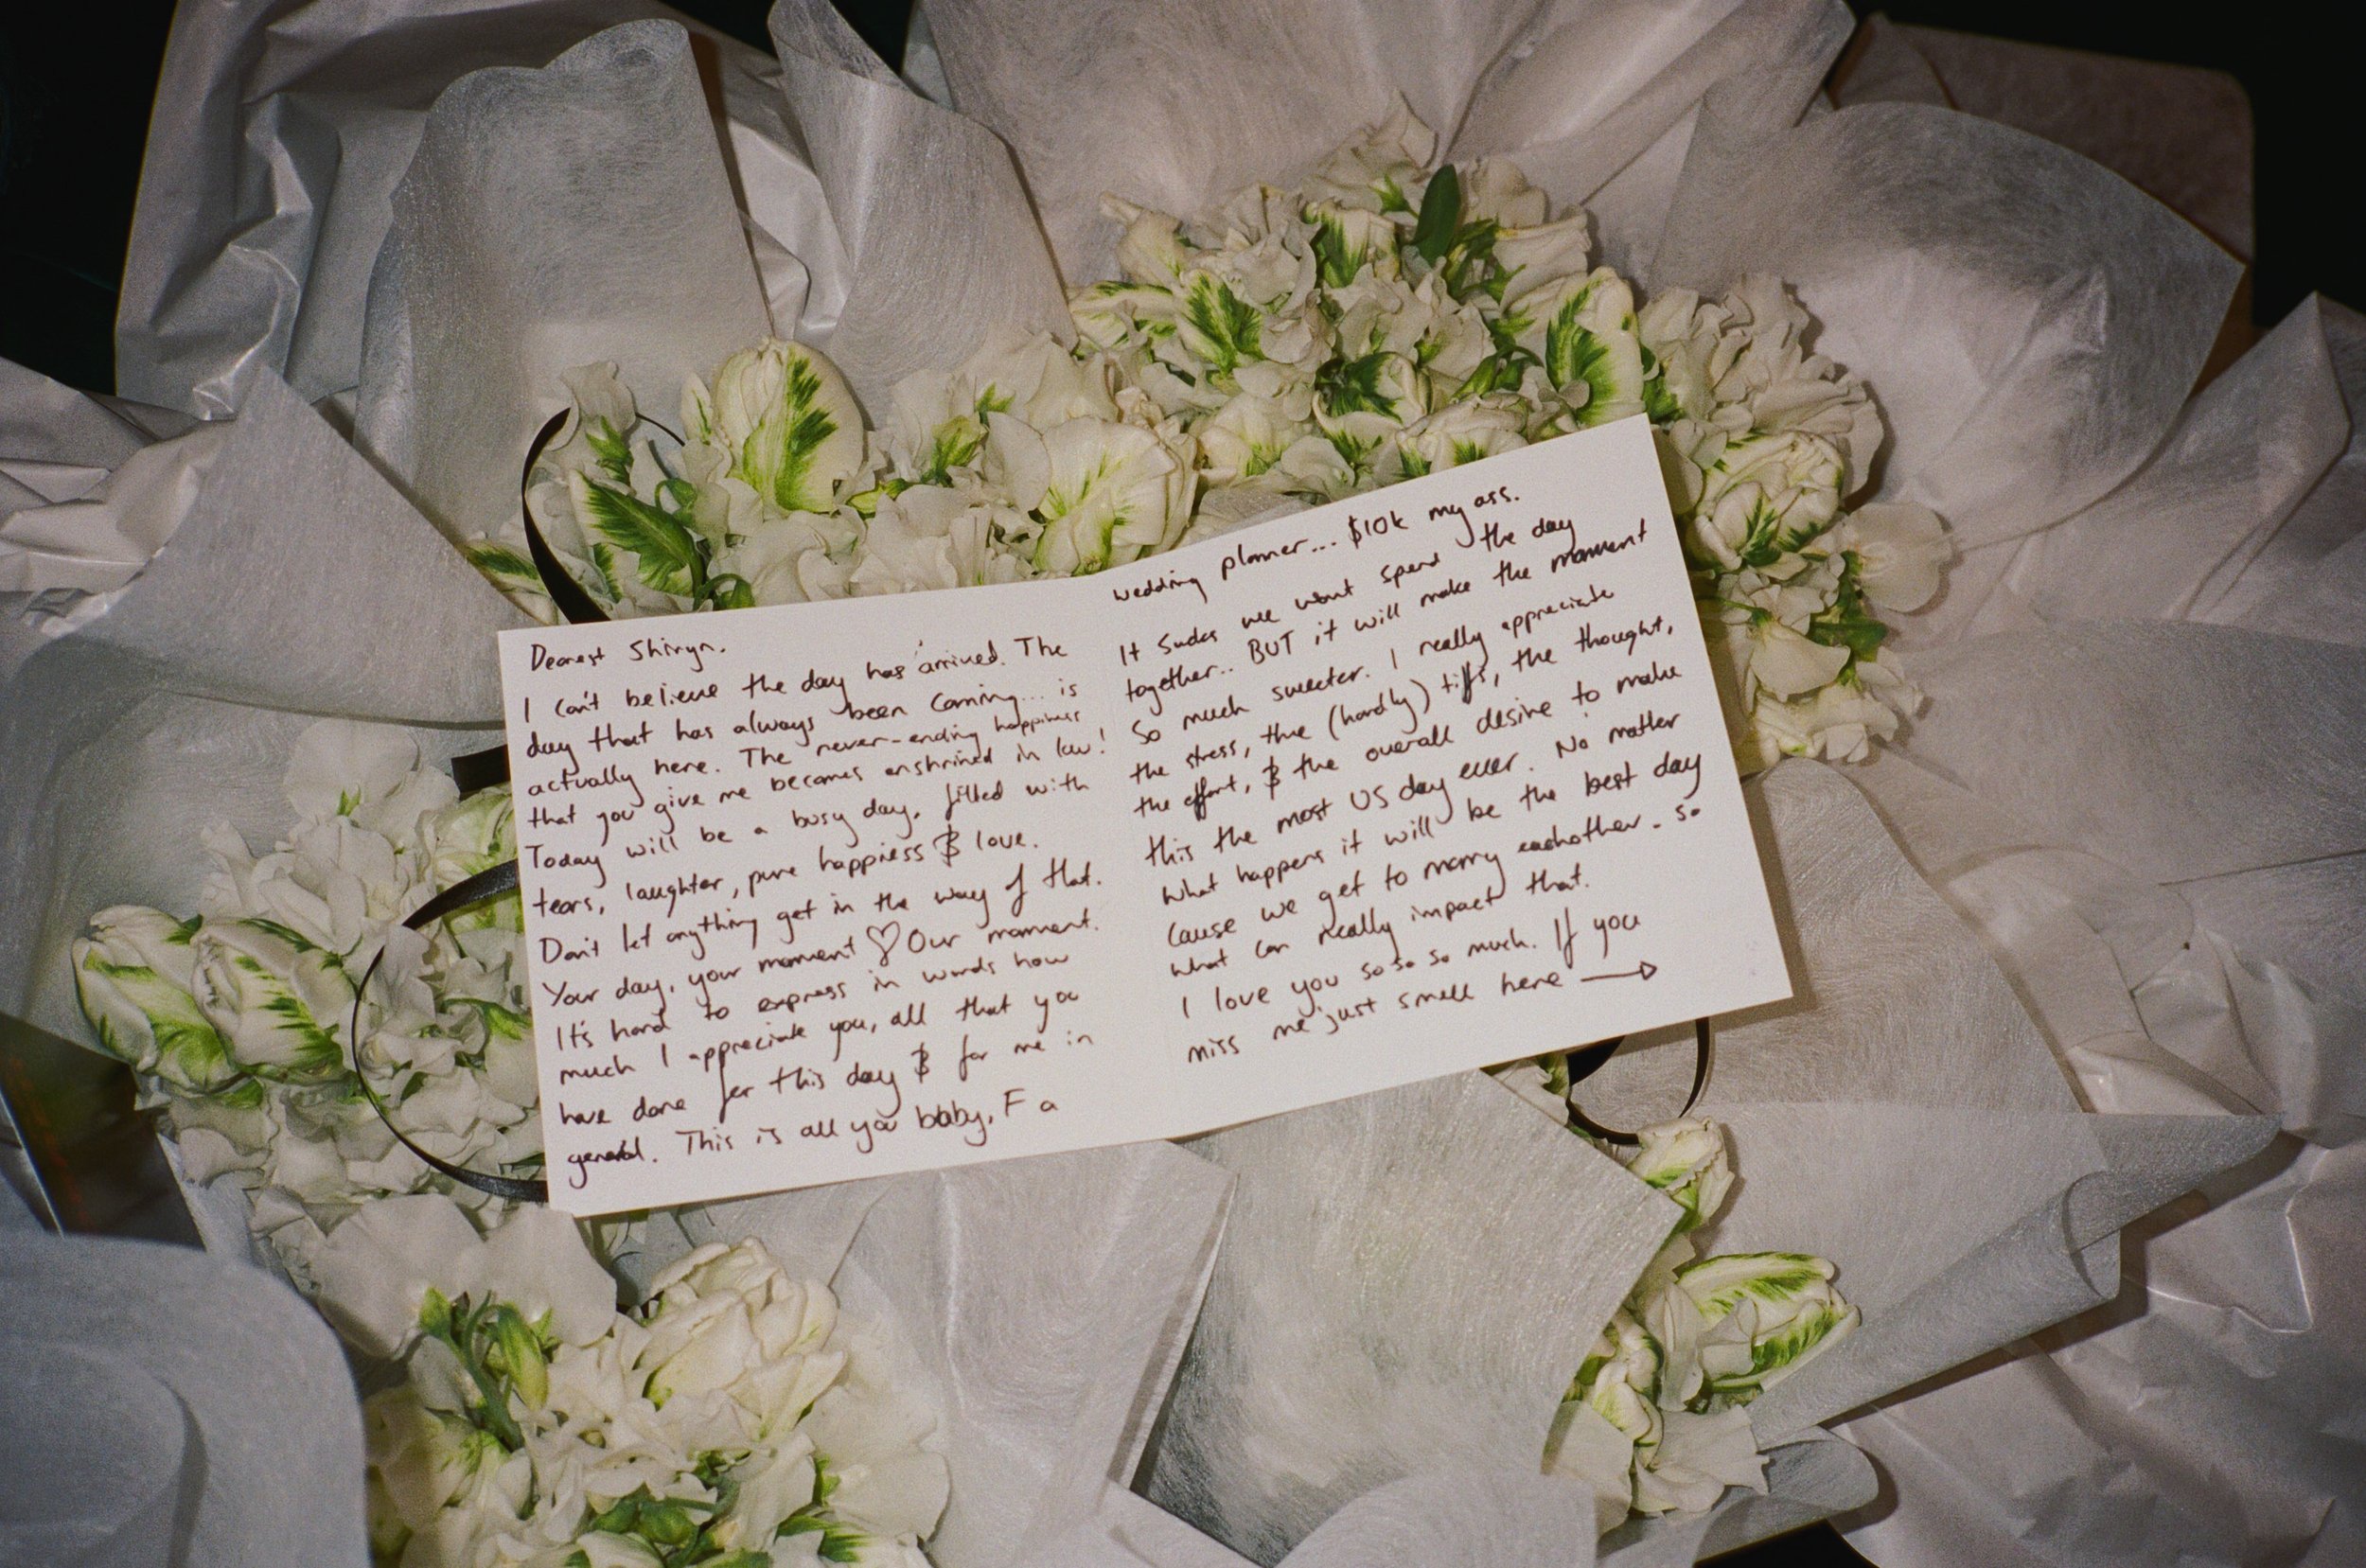 Dearest Shiryn.
I can't believe the day has arrived. The
day that has always been coming... is
actually here. The never-ending happiness
that you give me becomes enshrined in law!
Today will be a busy day, filled with
tears, laughter, pure happiness & love.
Don't let anything get in the way of that.
Your day, your moment ♡ Our moment.
It's hard to express in words how
much I appreciate you, all that you
have done for this day & for me in
general. This is all you baby, F a
wedding planner... $10k my ass.
It sucks we wont spend the day
together.. BUT it will make the moment
So much sweeter. I really appreciate
the stress, the (hardly) tiffs, the thought,
the effort, & the overall desire to make
this the most US day ever. No matter
what happens it will be the best day
cause we get to marry eachother. So
what can really impact that.
I love you so so so much. If you
miss me just smell here →